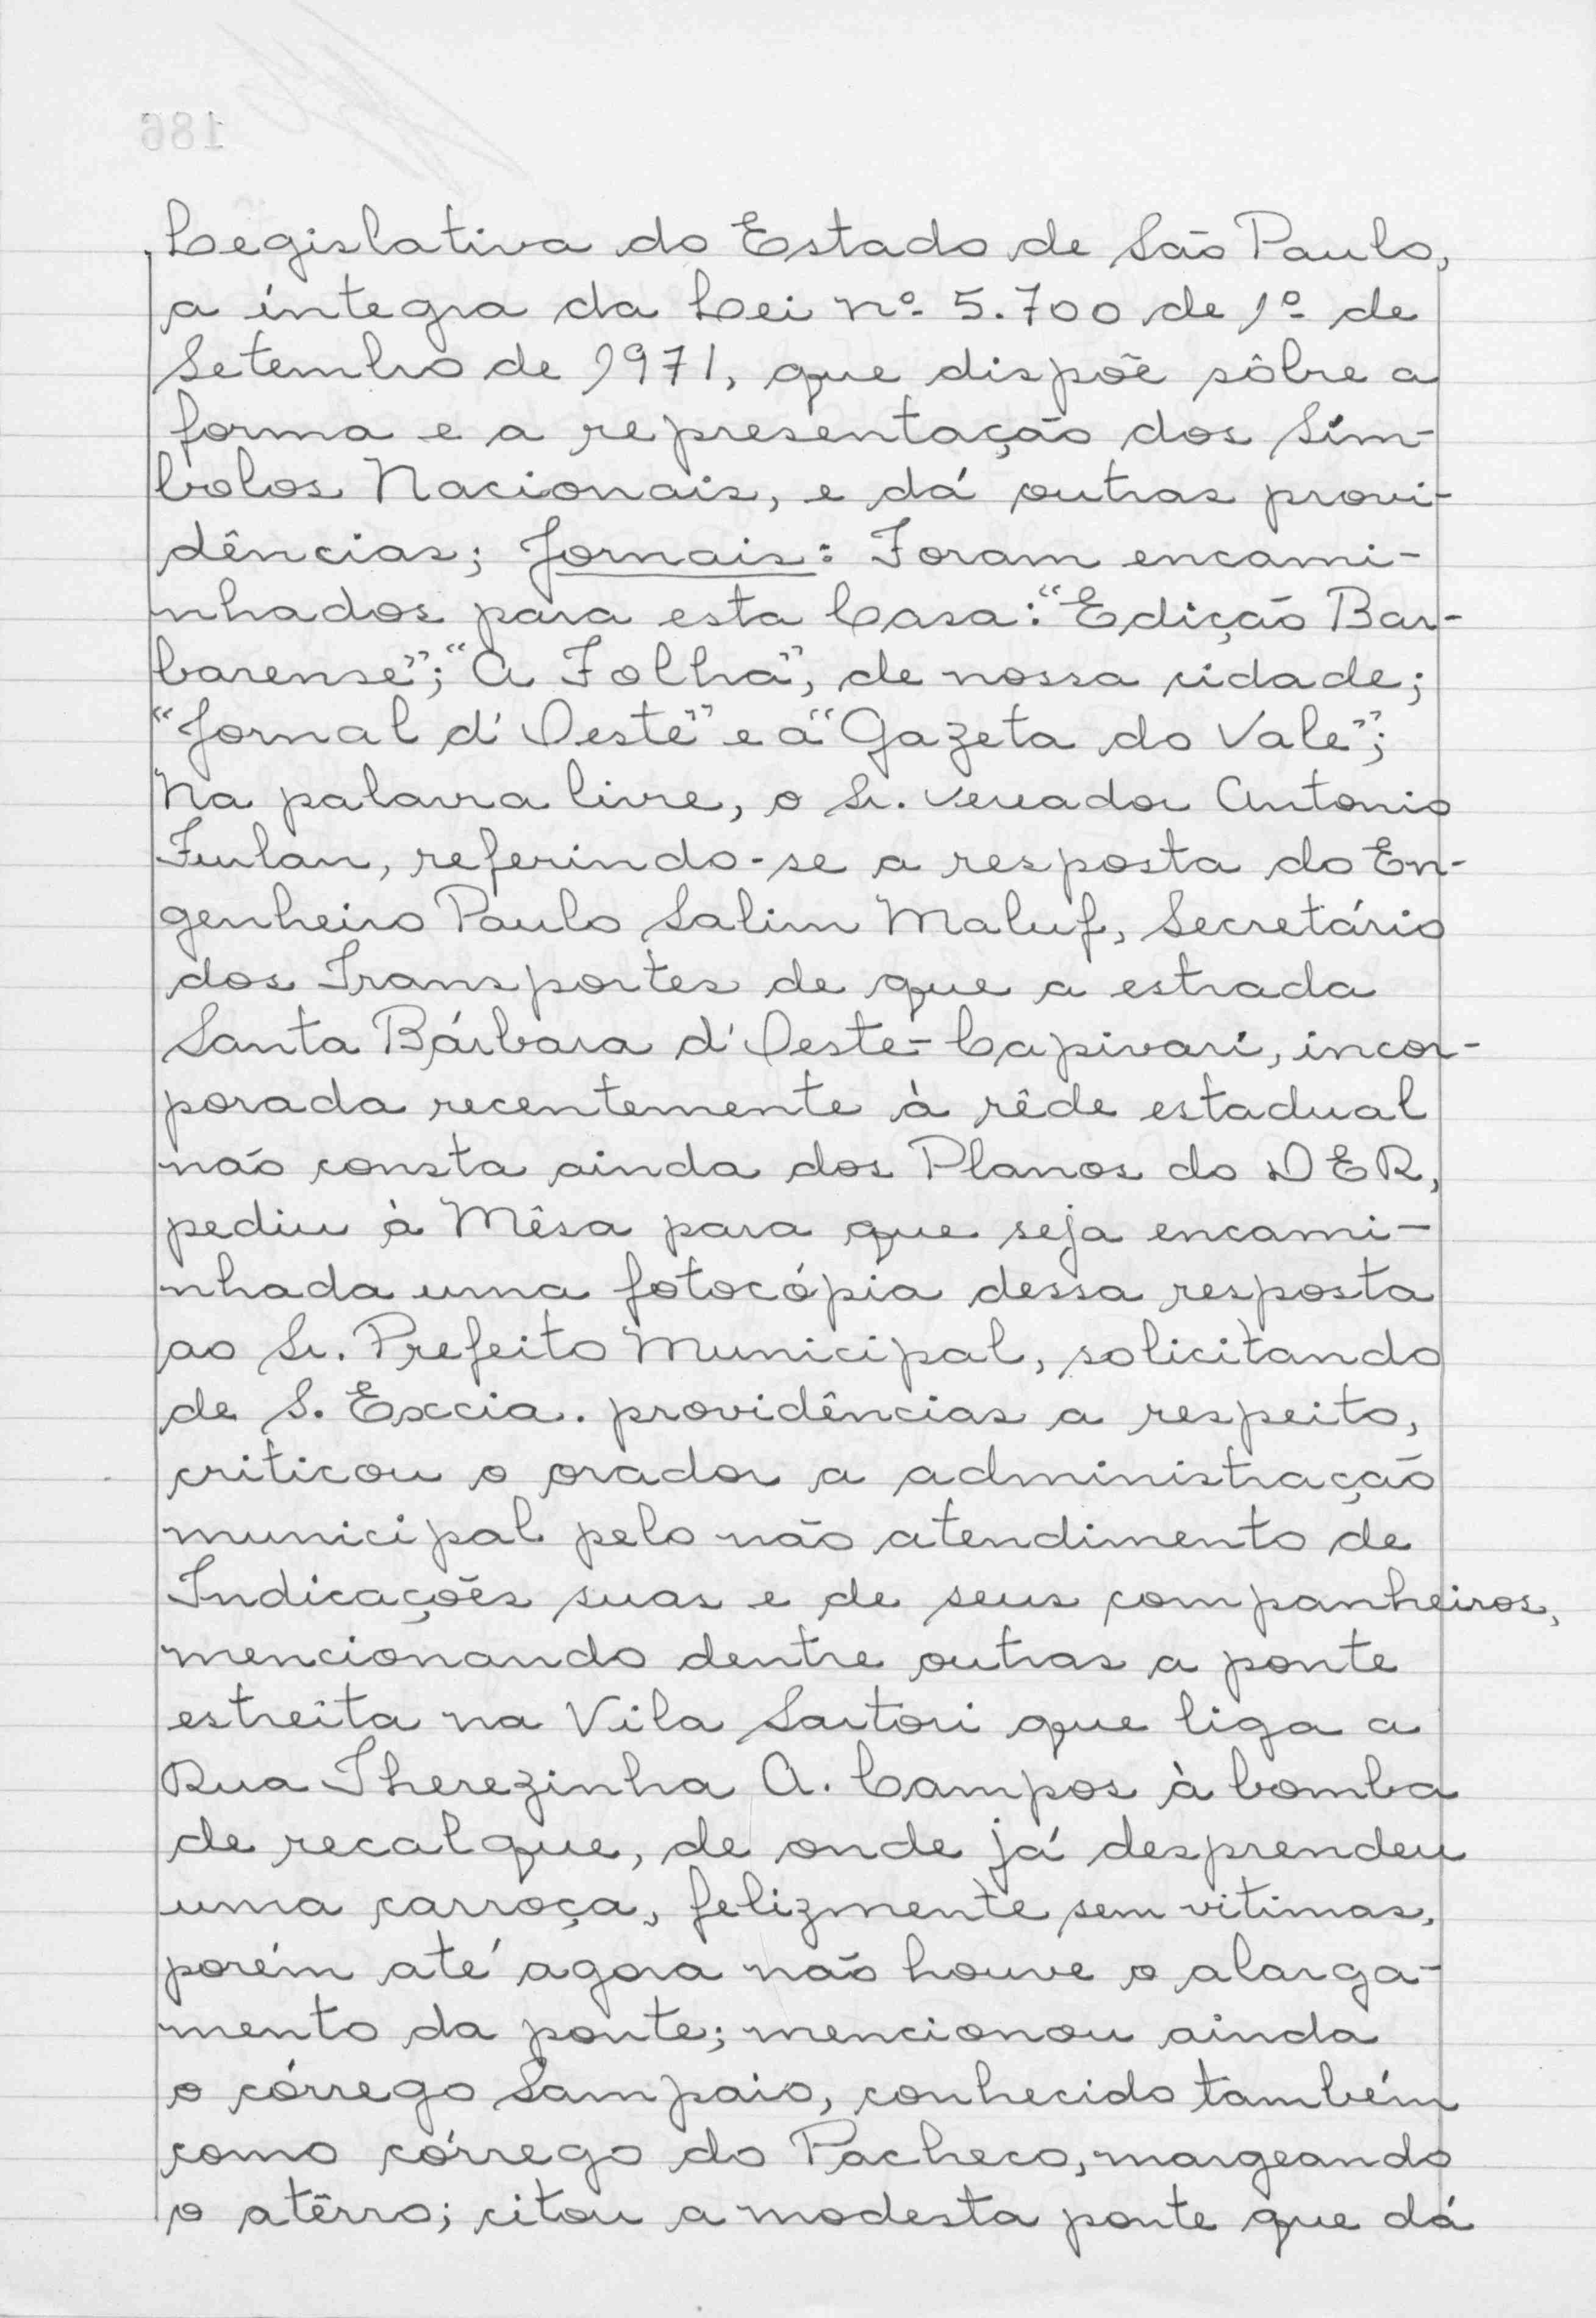 Legislativa do Estado de São Paulo,
a íntegra da Lei nº 5.700 de 1º de
Setembro de 1971, que dispõe sôbre a
forma e a representação dos Sím-
bolos Nacionais, e dá outras provi-
dências; Jornais: Foram encami-
nhados para esta Casa: "Edição Bar-
barense"; "A Folha", de nossa cidade;
"Jornal d'Oeste" e a "Gazeta do Vale";
Na palavra livre, o Sr. Vereador Antonio
Furlan, referindo-se a resposta do En-
genheiro Paulo Salim Maluf, Secretário
dos Transportes de que a estrada
Santa Bárbara d'Oeste-Capivari, incor-
porada recentemente à rêde estadual
não consta ainda dos Planos do DER,
pediu à Mêsa para que seja encami-
nhada uma fotocópia dessa resposta
ao Sr. Prefeito Municipal, solicitando
de S. Excia. providências a respeito,
criticou o orador a administração
municipal pelo não atendimento de
Indicações suas e de seus companheiros,
mencionando dentre outras a ponte
estreita na Vila Sartori que liga a
Rua Therezinha A. Campos à bomba
de recalque, de onde já desprendeu
uma carroça, felizmente sem vitimas,
porém até agora não houve o alarga-
mento da ponte; mencionou ainda
o córrego Sampaio, conhecido também
como córrego do Pacheco, margeando
o atêrro; citou a modesta ponte que dá